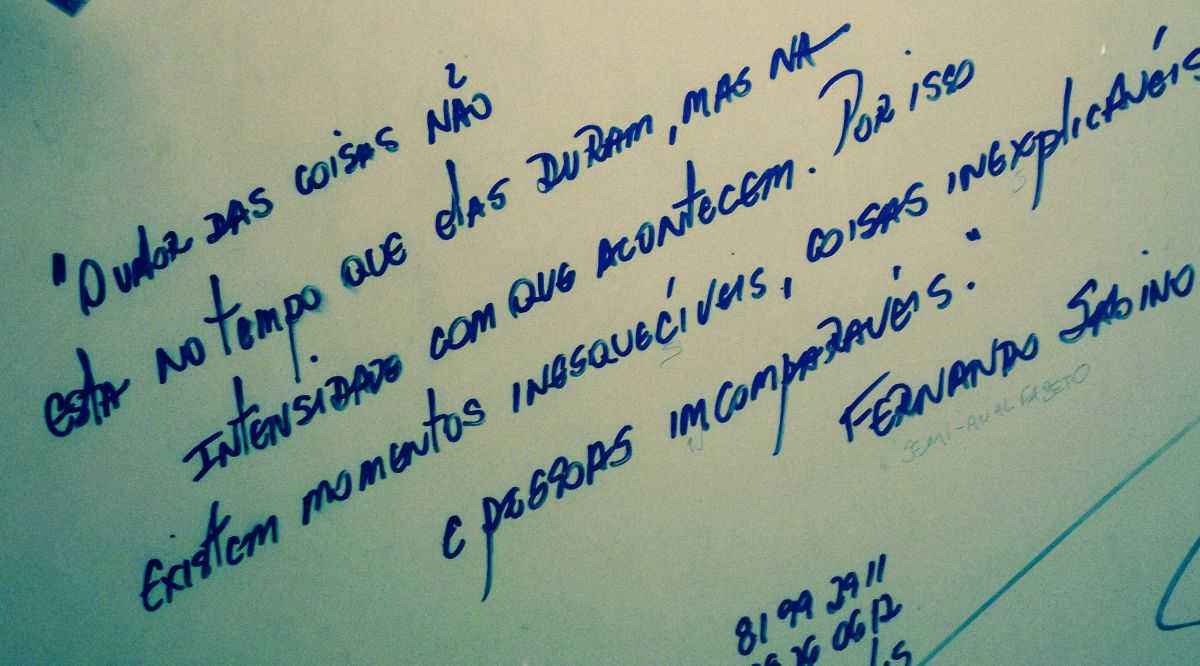 "O VALOR DAS COISAS NÃO
ESTA NO TEMPO QUE ELAS DURAM, MAS NA
INTENSIDADE COM QUE ACONTECEM. POR ISSO
EXISTEM MOMENTOS INESQUECÍVEIS, COISAS INEXPLICAVÉIS
S
S
E PESSOAS IMCOMPARAVÉIS."
N
FERNANDO SABINO
SEMI-ANALFABETO
8199 2911
26 0612